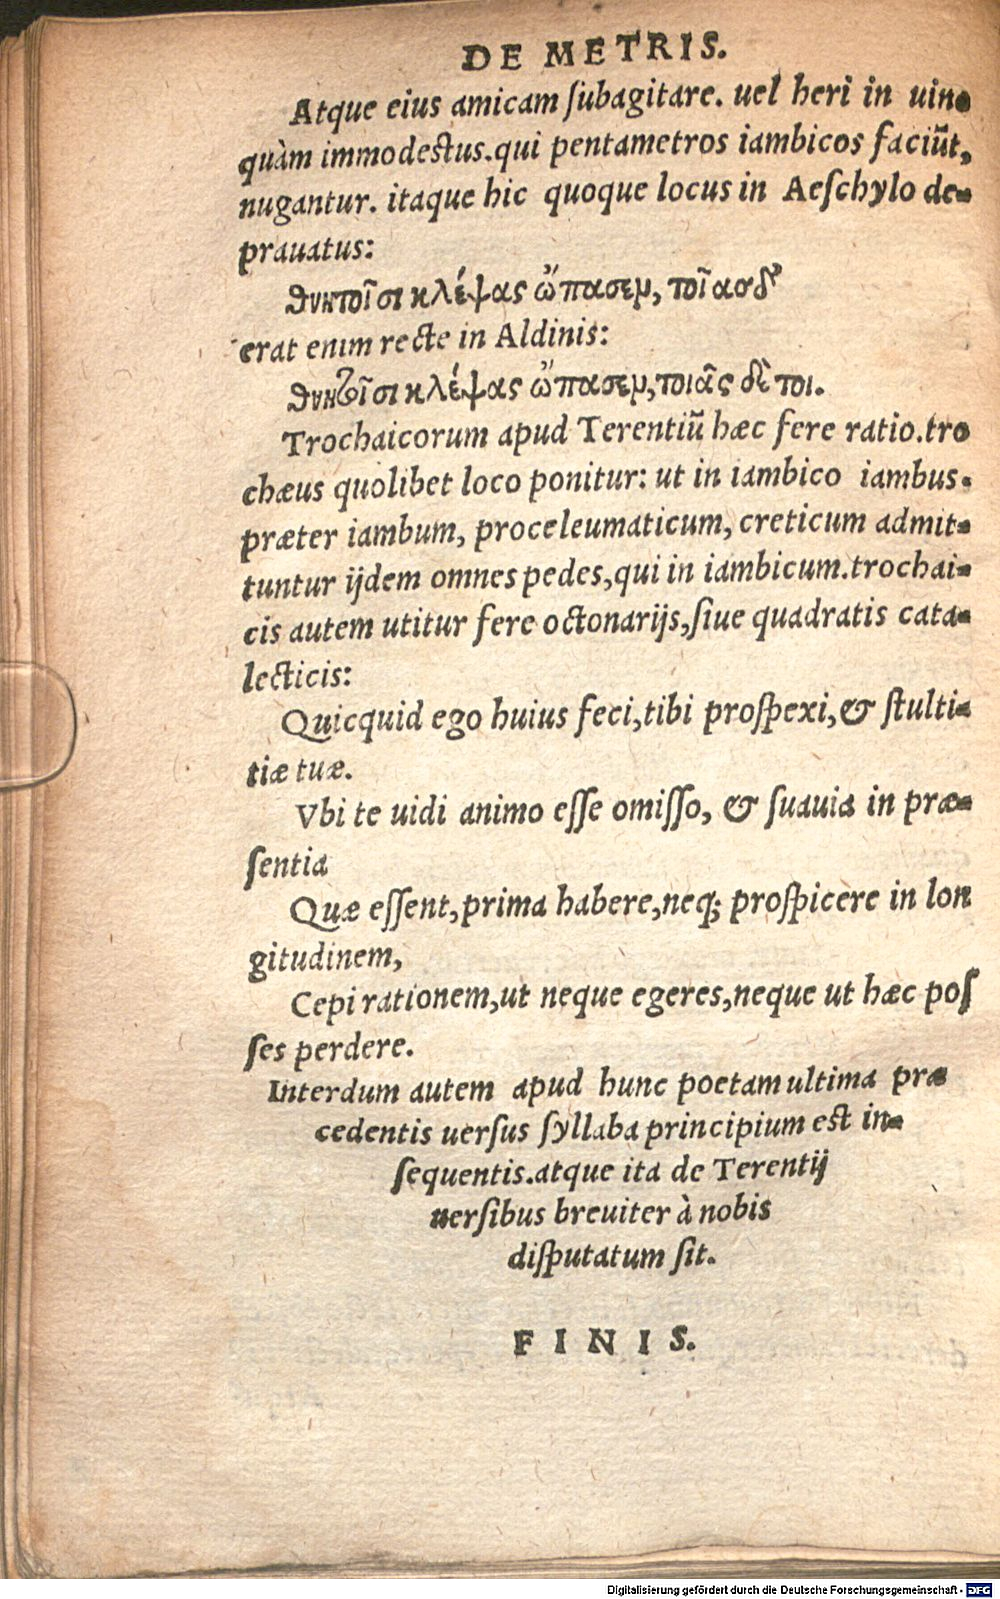 DE METRIS.
Atque eius amicam ſubagitare. uel heri in uino
quàm immodestus.qui pentametros iambicos faciũt,
nugantur. itaque hic quoque locus in Aeſchylo de-
prauatus:
θνητοῖσι κλέψας ὤπασεν, τοῖασδ'
erat enim recte in Aldinis:
θνητοῖσι κλέψας ὤπασεν, τοιᾶς δὲ τοι.
Trochaicorum apud Terentiũ hæc fere ratio.tro
chæus quolibet loco ponitur: ut in iambico iambus.
præter iambum, proceleumaticum, creticum admit-
tuntur ijdem omnes pedes,qui in iambicum.trochai-
cis autem utitur fere octonarijs,ſiue quadratis cata-
lecticis:
Quicquid ego huius feci,tibi proſpexi,& stulti-
tiæ tuæ.
Vbi te uidi animo eſſe omiſſo, & ſuauia in præ-
ſentia
Quæ eſſent,prima habere,neq; proſpicere in lon
gitudinem,
Cepi rationem,ut neque egeres,neque ut hæc poſ
ſes perdere.
Interdum autem apud hunc poetam ultima præ
cedentis uerſus ſyllaba principium est in-
ſequentis.atque ita de Terentij
uerſibus breuiter à nobis
diſputatum ſit.
FINIS.
Digitalisierung gefördert durch die Deutsche Forschungsgemeinschaft - DFG